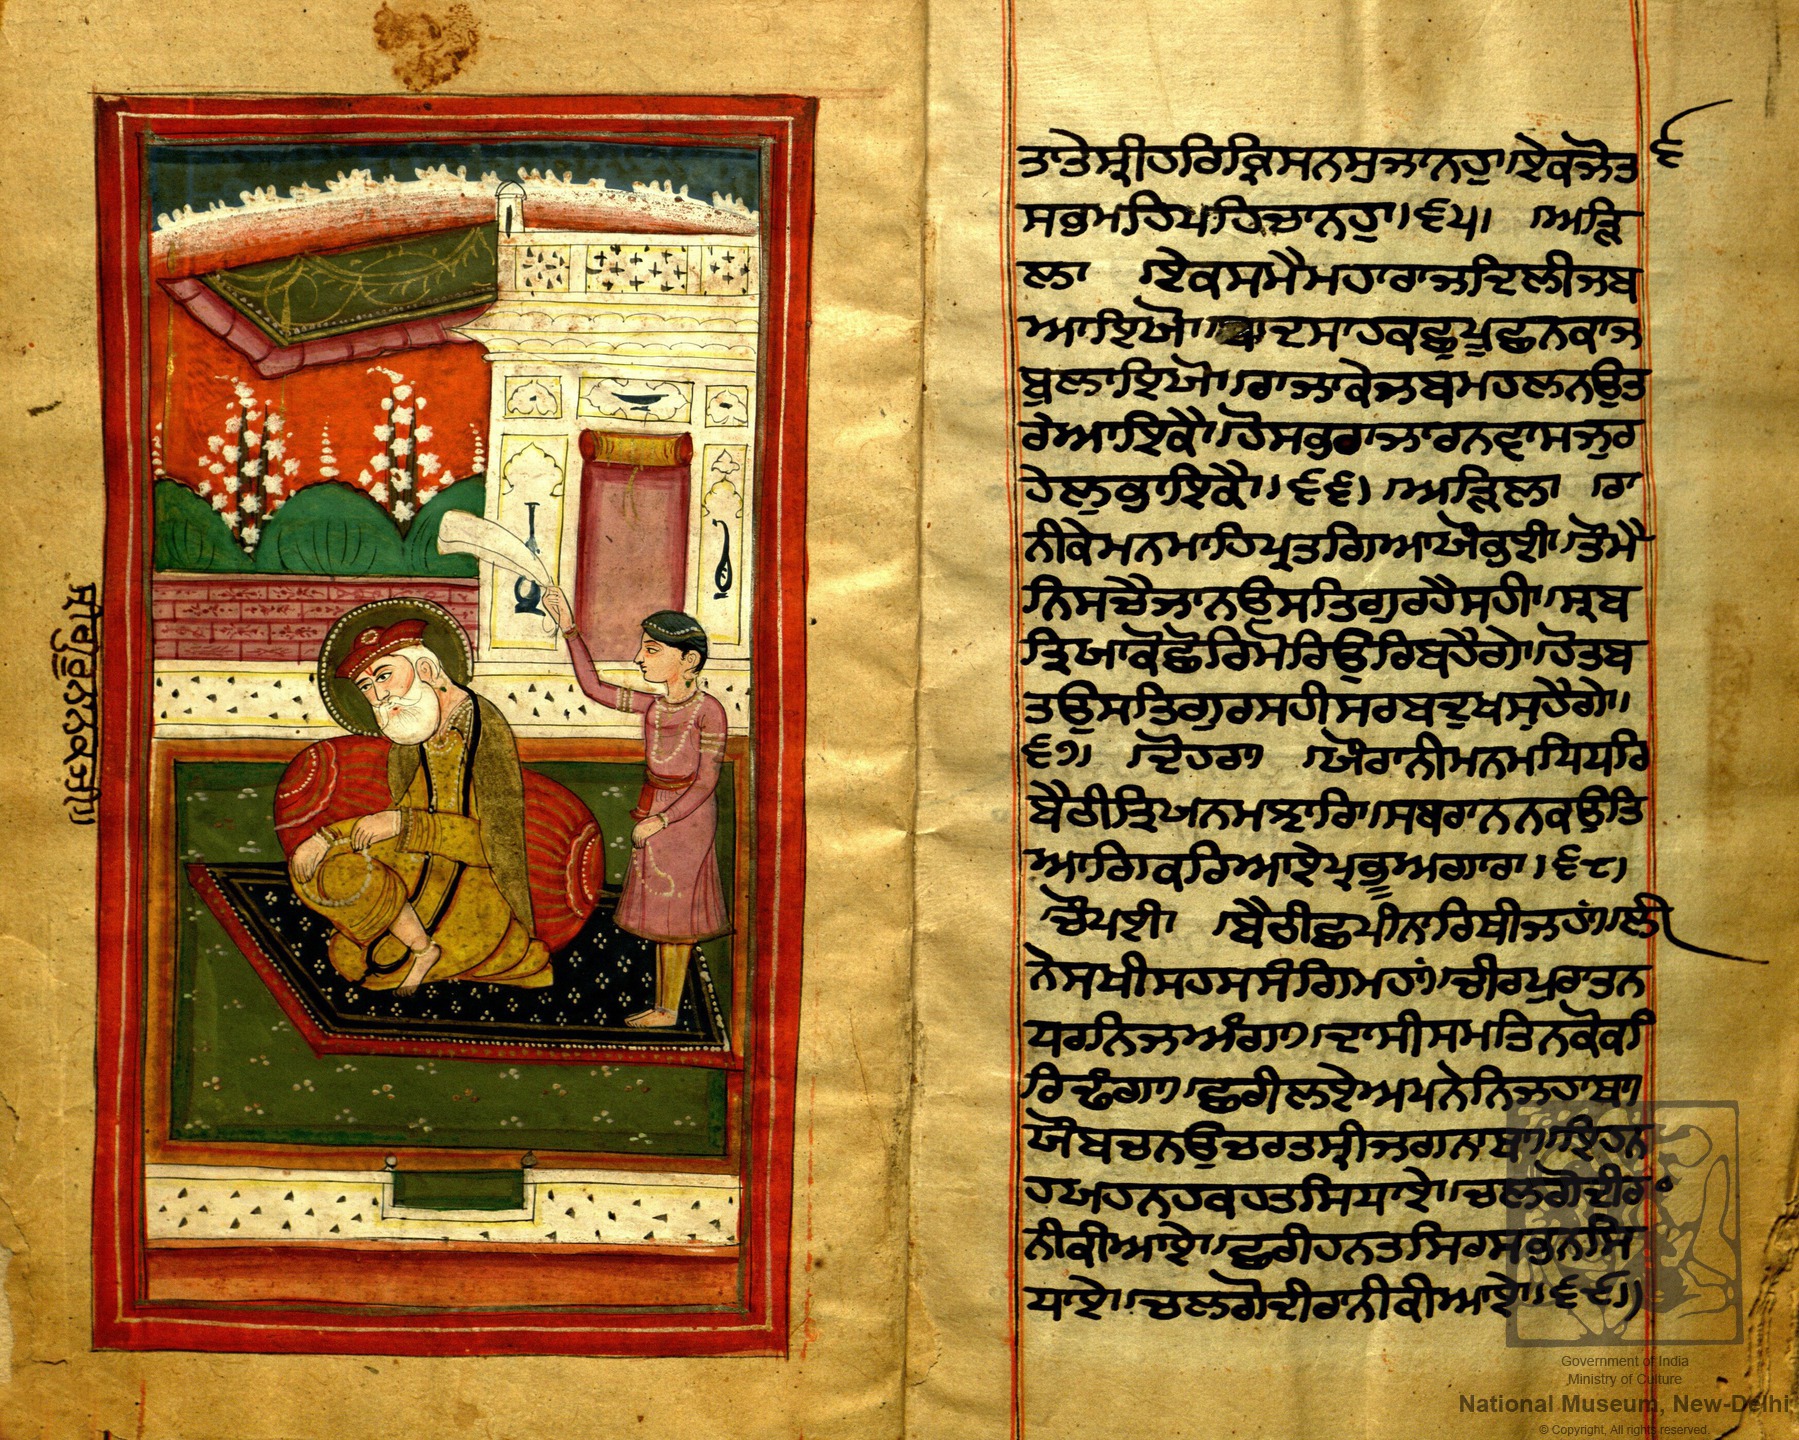 ਸ੍ਰੀਗੁਰੂਨਾਨਕਜੀ॥
ਤਾਤੇਸ੍ਰੀਹਰਿਕ੍ਰਿਸਨਸੁਜਾਨਹੁ।ਇਕਜੋਤ
ਸਭਮਹਿਪਹਿਚਾਨਹੁ।੬੫। ਅੜਿ
ਲ। ਇਕਸਮੈਮਹਾਰਾਜਦਿਲੀਜਬ
ਆਇਯੋ। ਦਸਾਹਕਛੁਪੁਛਨਕਾਜ
ਬੁਲਾਇਯੋ।ਰਾਜਾਕੇਜਬਮਹਲਨਉਤ
ਰੇਆਇਕੈ।ਹੋਸਭੁਰਾਜਾਰਨਵਾਸਜੁਰ
ਹੇਲੁਭਾਇਕੈ।੬੬। ਅੜਿਲ। ਰਾ
ਨੀਕੇਮਨਮਾਹਿਪ੍ਰਤਗਿਆਯੌਭਈ।ਤੌਮੈ
ਨਿਸਚੈਜਾਨਉਸਤਿਗੁਰਹੈਸਹੀ।ਸਬ
ਤ੍ਰਿਯਾਕੋਛੋਰਿਮੋਰਿਉਰਿਬਹੈਗੇ।ਹੋਤਬ
ਤਉਸਤਿਗੁਰਸਹੀਸਰਬਦੁਖਸੁਹੈਗੇ॥
੬੭। ਦੋਹਰਾ ਯੌਰਾਨੀਮਨਮਧਿਧਰਿ
ਬੈਠੀਤ੍ਰਿਯਨਮਝਾਰਿ।ਸਬਰਾਨਨਕਉਤਿ
ਆਗਿਕਰਿਆਏਪ੍ਰਭੂਅਗਾਰਾ।੬੮।
ਚੌਪਈ। ਬੈਠੀਛਪੀਨਾਰਿਬੀਜਹਾਂ।ਲੀ
ਨੇਸਖੀਸਹਸਸੰਗਿਮਹਾਂ।ਚੀਰਪੁਰਾਤਨ
ਧਰਨਿਜਅੰਗਾ।ਦਾਸੀਸਮਤਿਨਕੋਕ
ਰਿਢੰਗਾ।ਛਰੀਲਏਅਪਨੇਨਿਜਹਾਥਾ
ਯੌਬਚਨਉਚਰਤਸ੍ਰੀਜਗਨਾਥਾ।ਇਹਨ
ਹਯਹਨਹਕਹਤਸਿਧਾਏ।ਚਲਗੇਦੀਰ
ਨੀਕੀਆਏ।ਛਰੀਹਨਤਸਿਰਸਭਨਸਿ
ਧਾਏ।ਚਲਗੇਦੀਰਾਨੀਕੀਆਏ।੬੯।
Government of India
Ministry of Culture
National Museum, New-Delhi
© Copyright, All rights reserved.